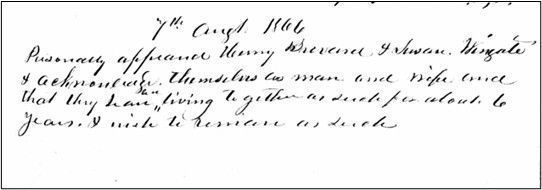 7th Augt 1866
Personally appeared Henry Brevard & Susan Wingate
& acknowledge themselves as man and wife and
that they have been living together as such for about 6
years. & wish to remain as such